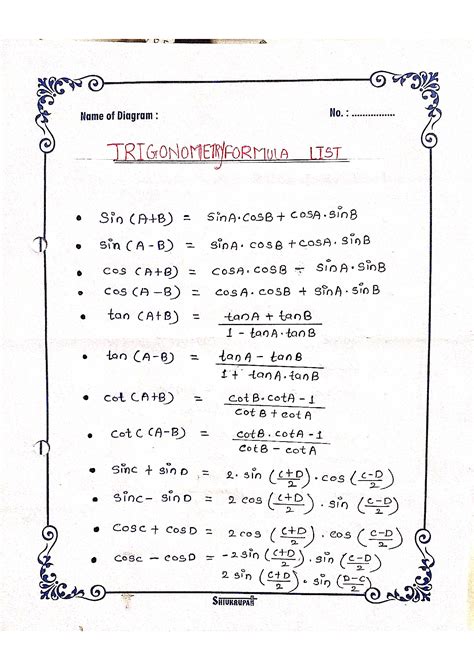 Name of Diagram :
No. : ................
TRIGONOMETRY FORMULA LIST
• Sin (A+B) = SinA·CosB + CosA·SinB
• Sin (A-B) = SinA·CosB + CosA·SinB
• Cos (A+B) = CosA·CosB - SinA·SinB
• Cos (A-B) = CosA·CosB + SinA·SinB
• tan (A+B) = tanA + tanB / 1 - tanA·tanB
• tan (A-B) = tanA - tanB / 1 + tanA·tanB
• Cot (A+B) = CotB·CotA - 1 / CotB + CotA
• Cot C (A-B) = CotB·CotA - 1 / CotB - CotA
• SinC + SinD = 2·Sin (C+D/2)·Cos (C-D/2)
• SinC - SinD = 2 Cos (C+D/2)·Sin (C-D/2)
• CosC + CosD = 2 Cos (C+D/2)·Cos (C-D/2)
• CosC - CosD = -2 Sin (C+D/2)·Sin (C-D/2)
2 Sin (C+D/2)·Sin (D-C/2)